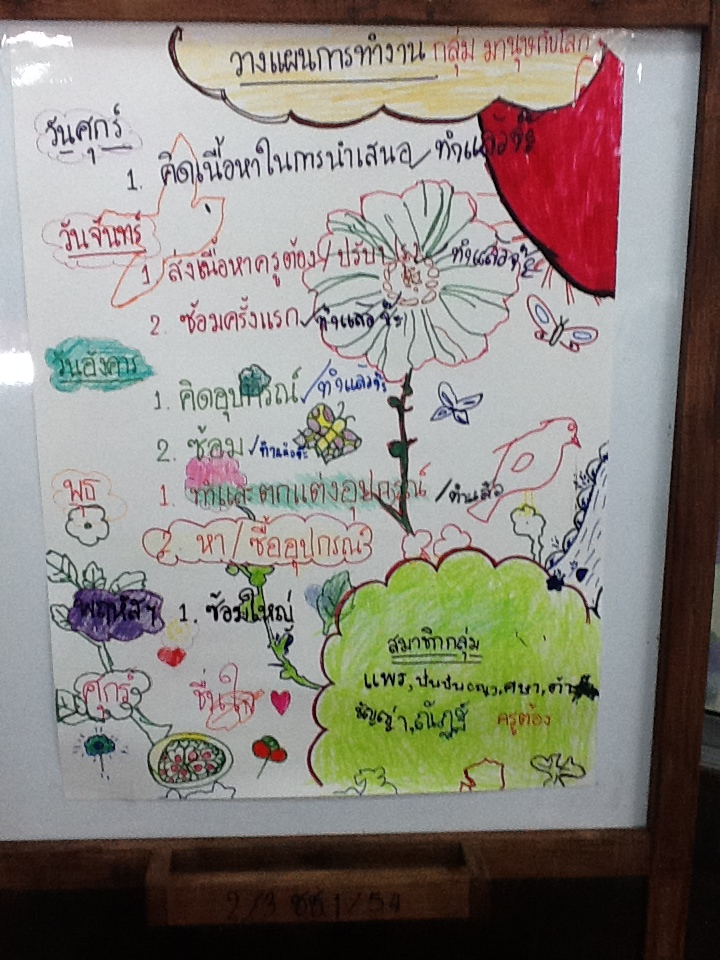 วางแผนการทำงาน กลุ่ม มานุษกับโลก
วันศุกร์
1. คิดเนื้อหาในการนำเสนอ / ทำแล้วจ้ะ
วันจันทร์
1 ส่งเนื้อหาครูต้อง / ปรับปรุง / ทำแล้วจ้ะ
2. ซ้อมครั้งแรก / ทำแล้วจ้ะ
วันอังคาร
1. คิดอุปกรณ์ / ทำแล้วจ้ะ
2. ซ้อม / ทำแล้วจ้ะ
พุธ
1. ทำและตกแต่งอุปกรณ์ / ทำแล้ว
2. หา / ซื้ออุปกรณ์
พฤหัสฯ 1. ซ้อมใหญ่
ศุกร์ ชื่นใจ
สมาชิกกลุ่ม
แพร,
ครูต้อง
2/3